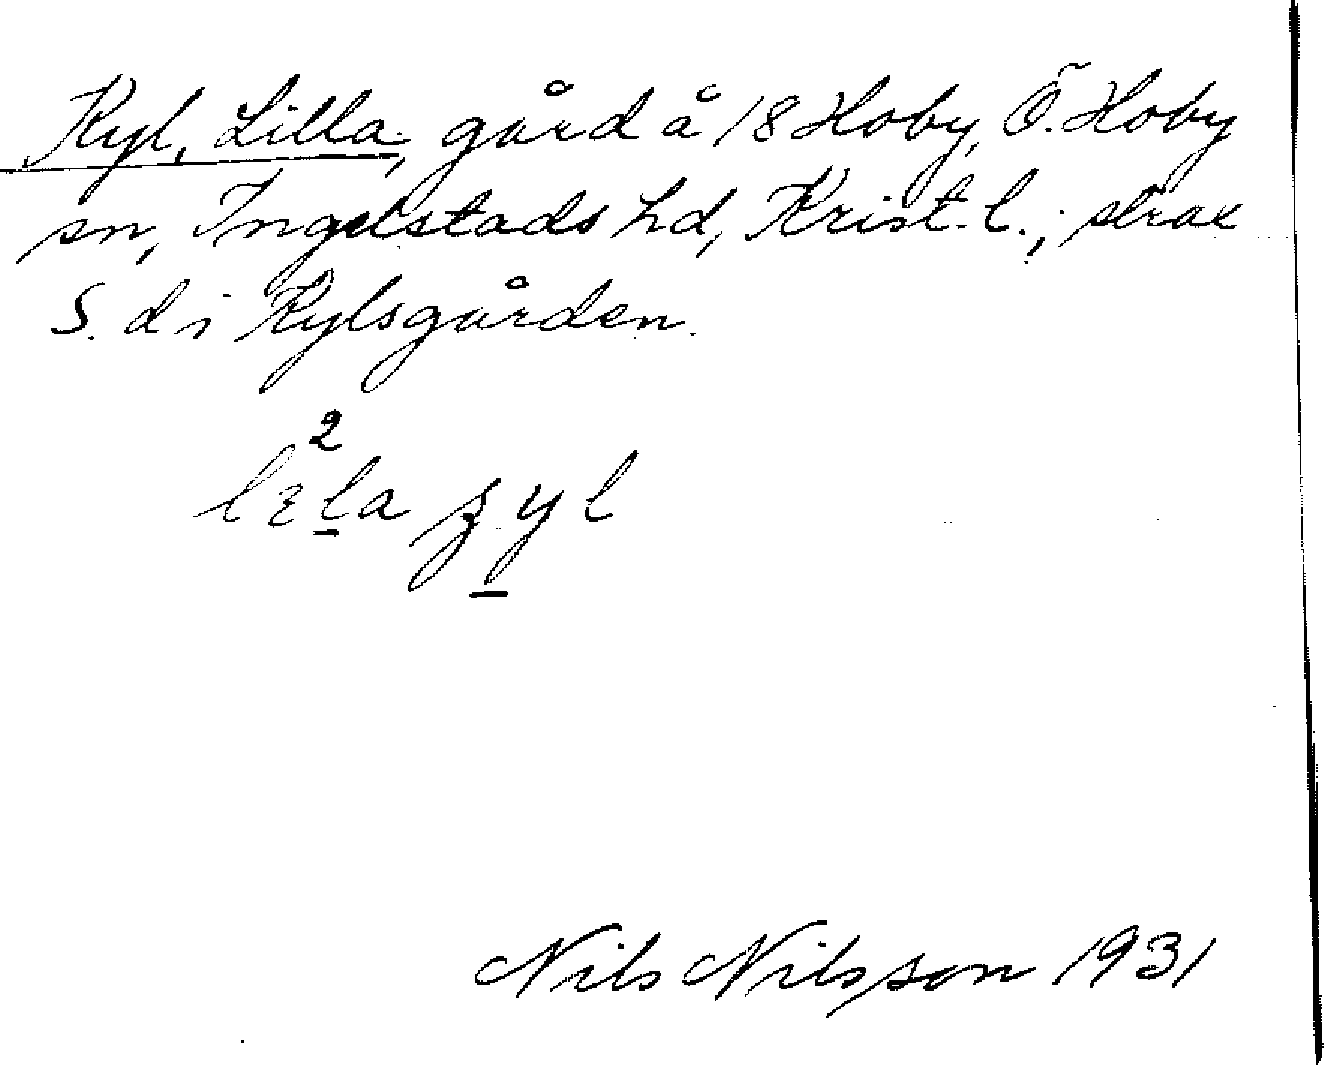 Kyl, Lilla, gård å 18 Hoby, Ö. Hoby
sn, Ingelstads hd, Krist. l.; strax
S. d i Kylsgården.
2
la
yl
Nils Nilsson 1931